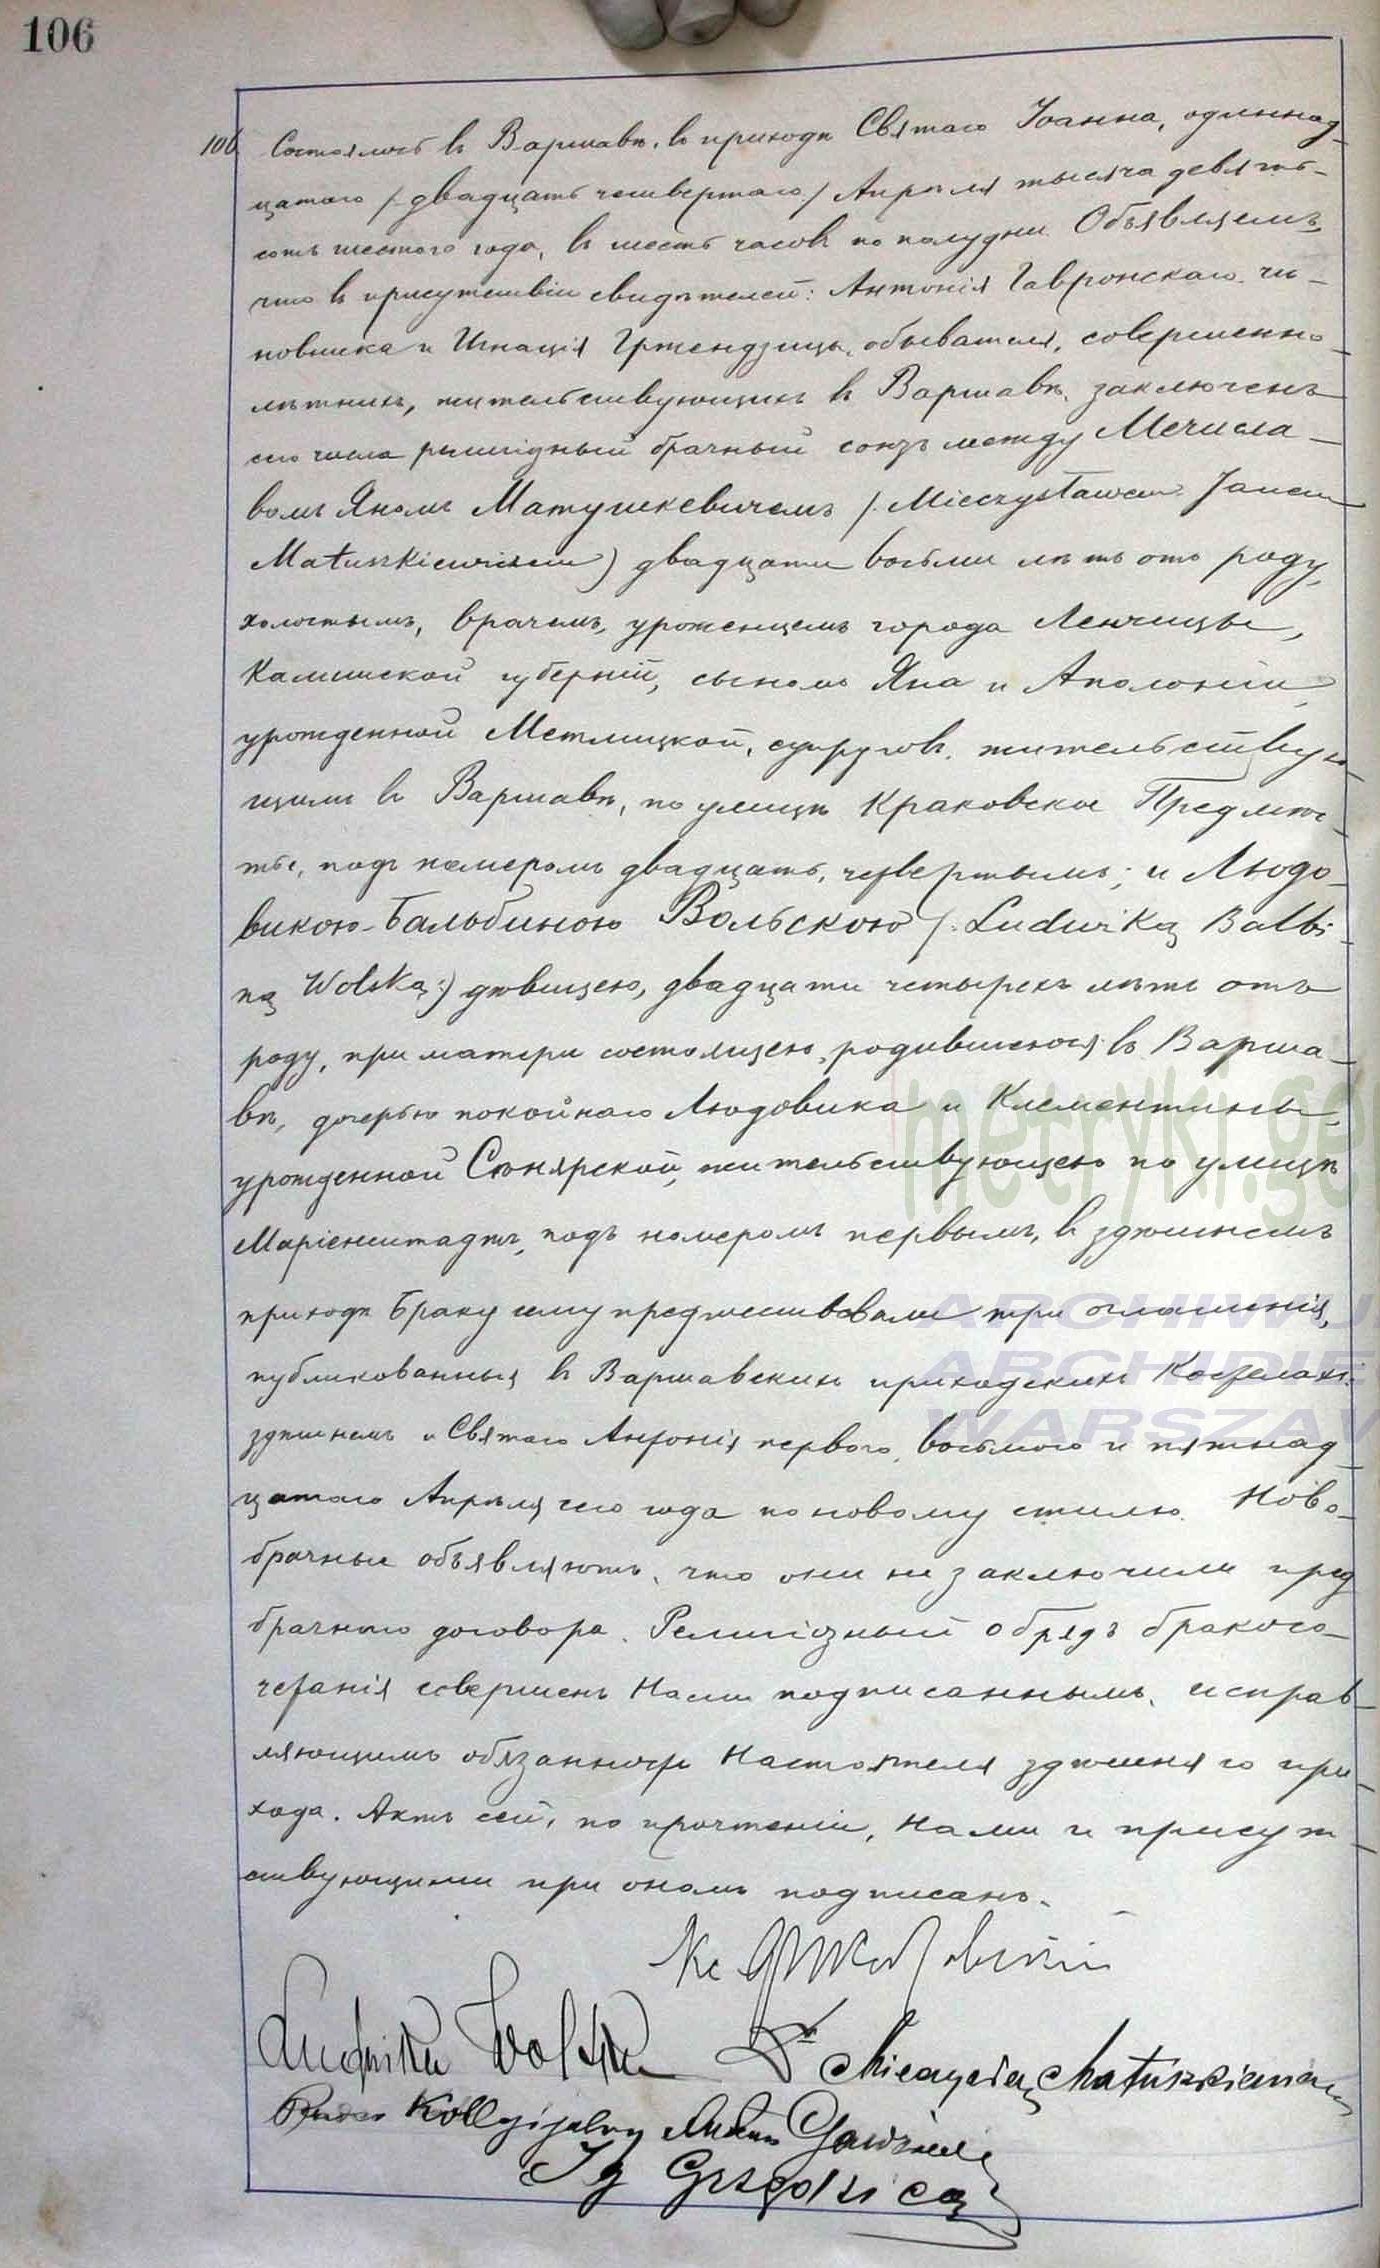 106
106 Состоялось въ Варшавѣ, въ приходѣ Святаго Іоанна, одиннад-
цатаго /двадцать четвертаго/ Апрѣля тысяча девять-
сотъ шестого года, въ шесть часовъ по полудни. Объявляемъ,
что въ присутствіи свидѣтелей: Антонія Гавронскаго, чи-
новника и Игнація Гржендзицы, обывателя, совершенно-
лѣтнихъ, жительствующихъ въ Варшавѣ, заключенъ
сего числа религіозный брачный союзъ между Мечисла-
вомъ Яномъ Матушкевичемъ /Mieczysławem Janem
Matuszkiewiczem) двадцати восьми лѣтъ отъ роду,
холостымъ, врачемъ, уроженцемъ города Ленчицы,
Калишской губерніи, сыномъ Яна и Аполоніи,
урожденной Метлицкой, супруговъ, жительствую-
щимъ въ Варшавѣ, по улицѣ Краковское Предмѣс-
тье, подъ номеромъ двадцать четвертымъ; и Людо-
викою-Бальбиною Вольскою /:Ludwiką Balbi-
ną Wolską:) дѣвицею, двадцати четырехъ лѣтъ отъ
роду, при матери состоящею, родившеюся въ Варша-
вѣ, дочерью покойнаго Людовика и Клементины,
урожденной Сѣнярской, жительствующею по улицѣ
Маріенштадтъ, подъ номеромъ первымъ, въ здѣшнемъ
приходѣ. Браку сему предшествовали три оглашенія,
публикованныя въ Варшавскихъ приходскихъ Костелахъ:
здѣшнемъ и Святаго Антонія перваго, восьмого и пятнад-
цатаго Апрѣля сего года по новому стилю. Ново-
брачные объявляютъ, что они не заключили пред
брачнаго договора. Религіозный обрядъ бракосо-
четанія совершенъ Нами подписаннымъ, исправ-
ляющимъ обязанность Настоятеля здѣшняго при-
хода. Актъ сей, по прочтеніи, Нами и присут-
ствующими при ономъ подписанъ.
Кс
Ludwika Wolska Dr Mieczysław Matuszkiewicz
Kollegijalny Antoni Gawroński
Ig Grzędzica
metryki.ge
ARCHIWU
ARCHIDIE
WARSZAW